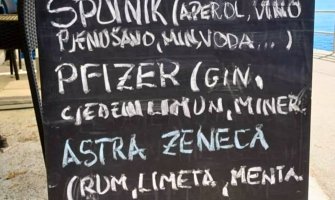 SPUTNIK (APEROL, VINO
PJENUŠAVO, MIN.VODA...)
PFIZER (GIN,
CJEĐENI LIMUN, MINER.
ASTRA ZENECA
(RUM, LIMETA, MENTA.